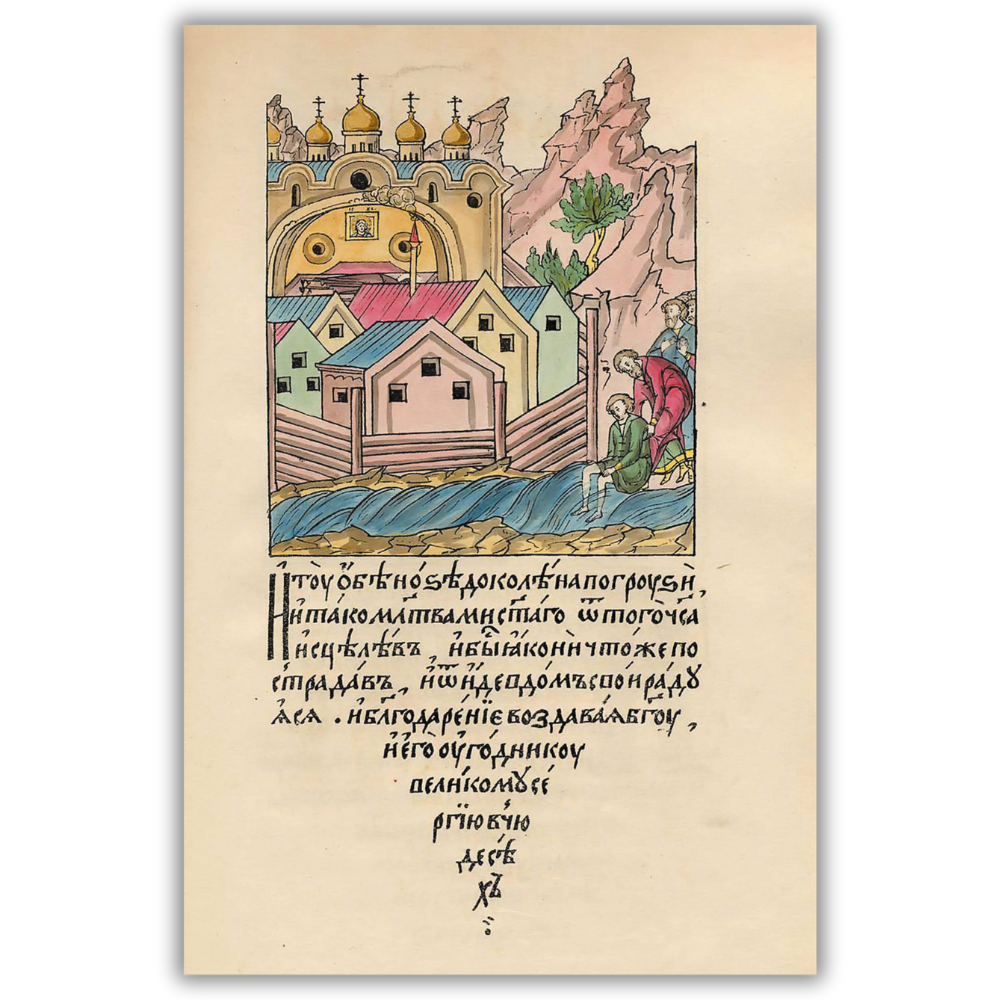 И҆ тоу̀ ѻ҆бѣ но́ѕѣ до колѣ́на погроуѕѝ,
и҆ та́ко мл҃твами ст҃а́го ѿ того̀ ч҃са
и҆сцѣлѣ́въ, и҆ бы́сть ꙗ҆́ко ничто́же по
страда́въ, и҆ ѿи́де в до́мъ сво́и ра́ду
ꙗ҆сѧ. и҆ бл҃годаре́нїе воздава́ѧ бг҃оу,
и҆ е҆го̀ оу҆го́дникоу
вели́комꙋ се́
ргїю в чю
десѣ́
хъ